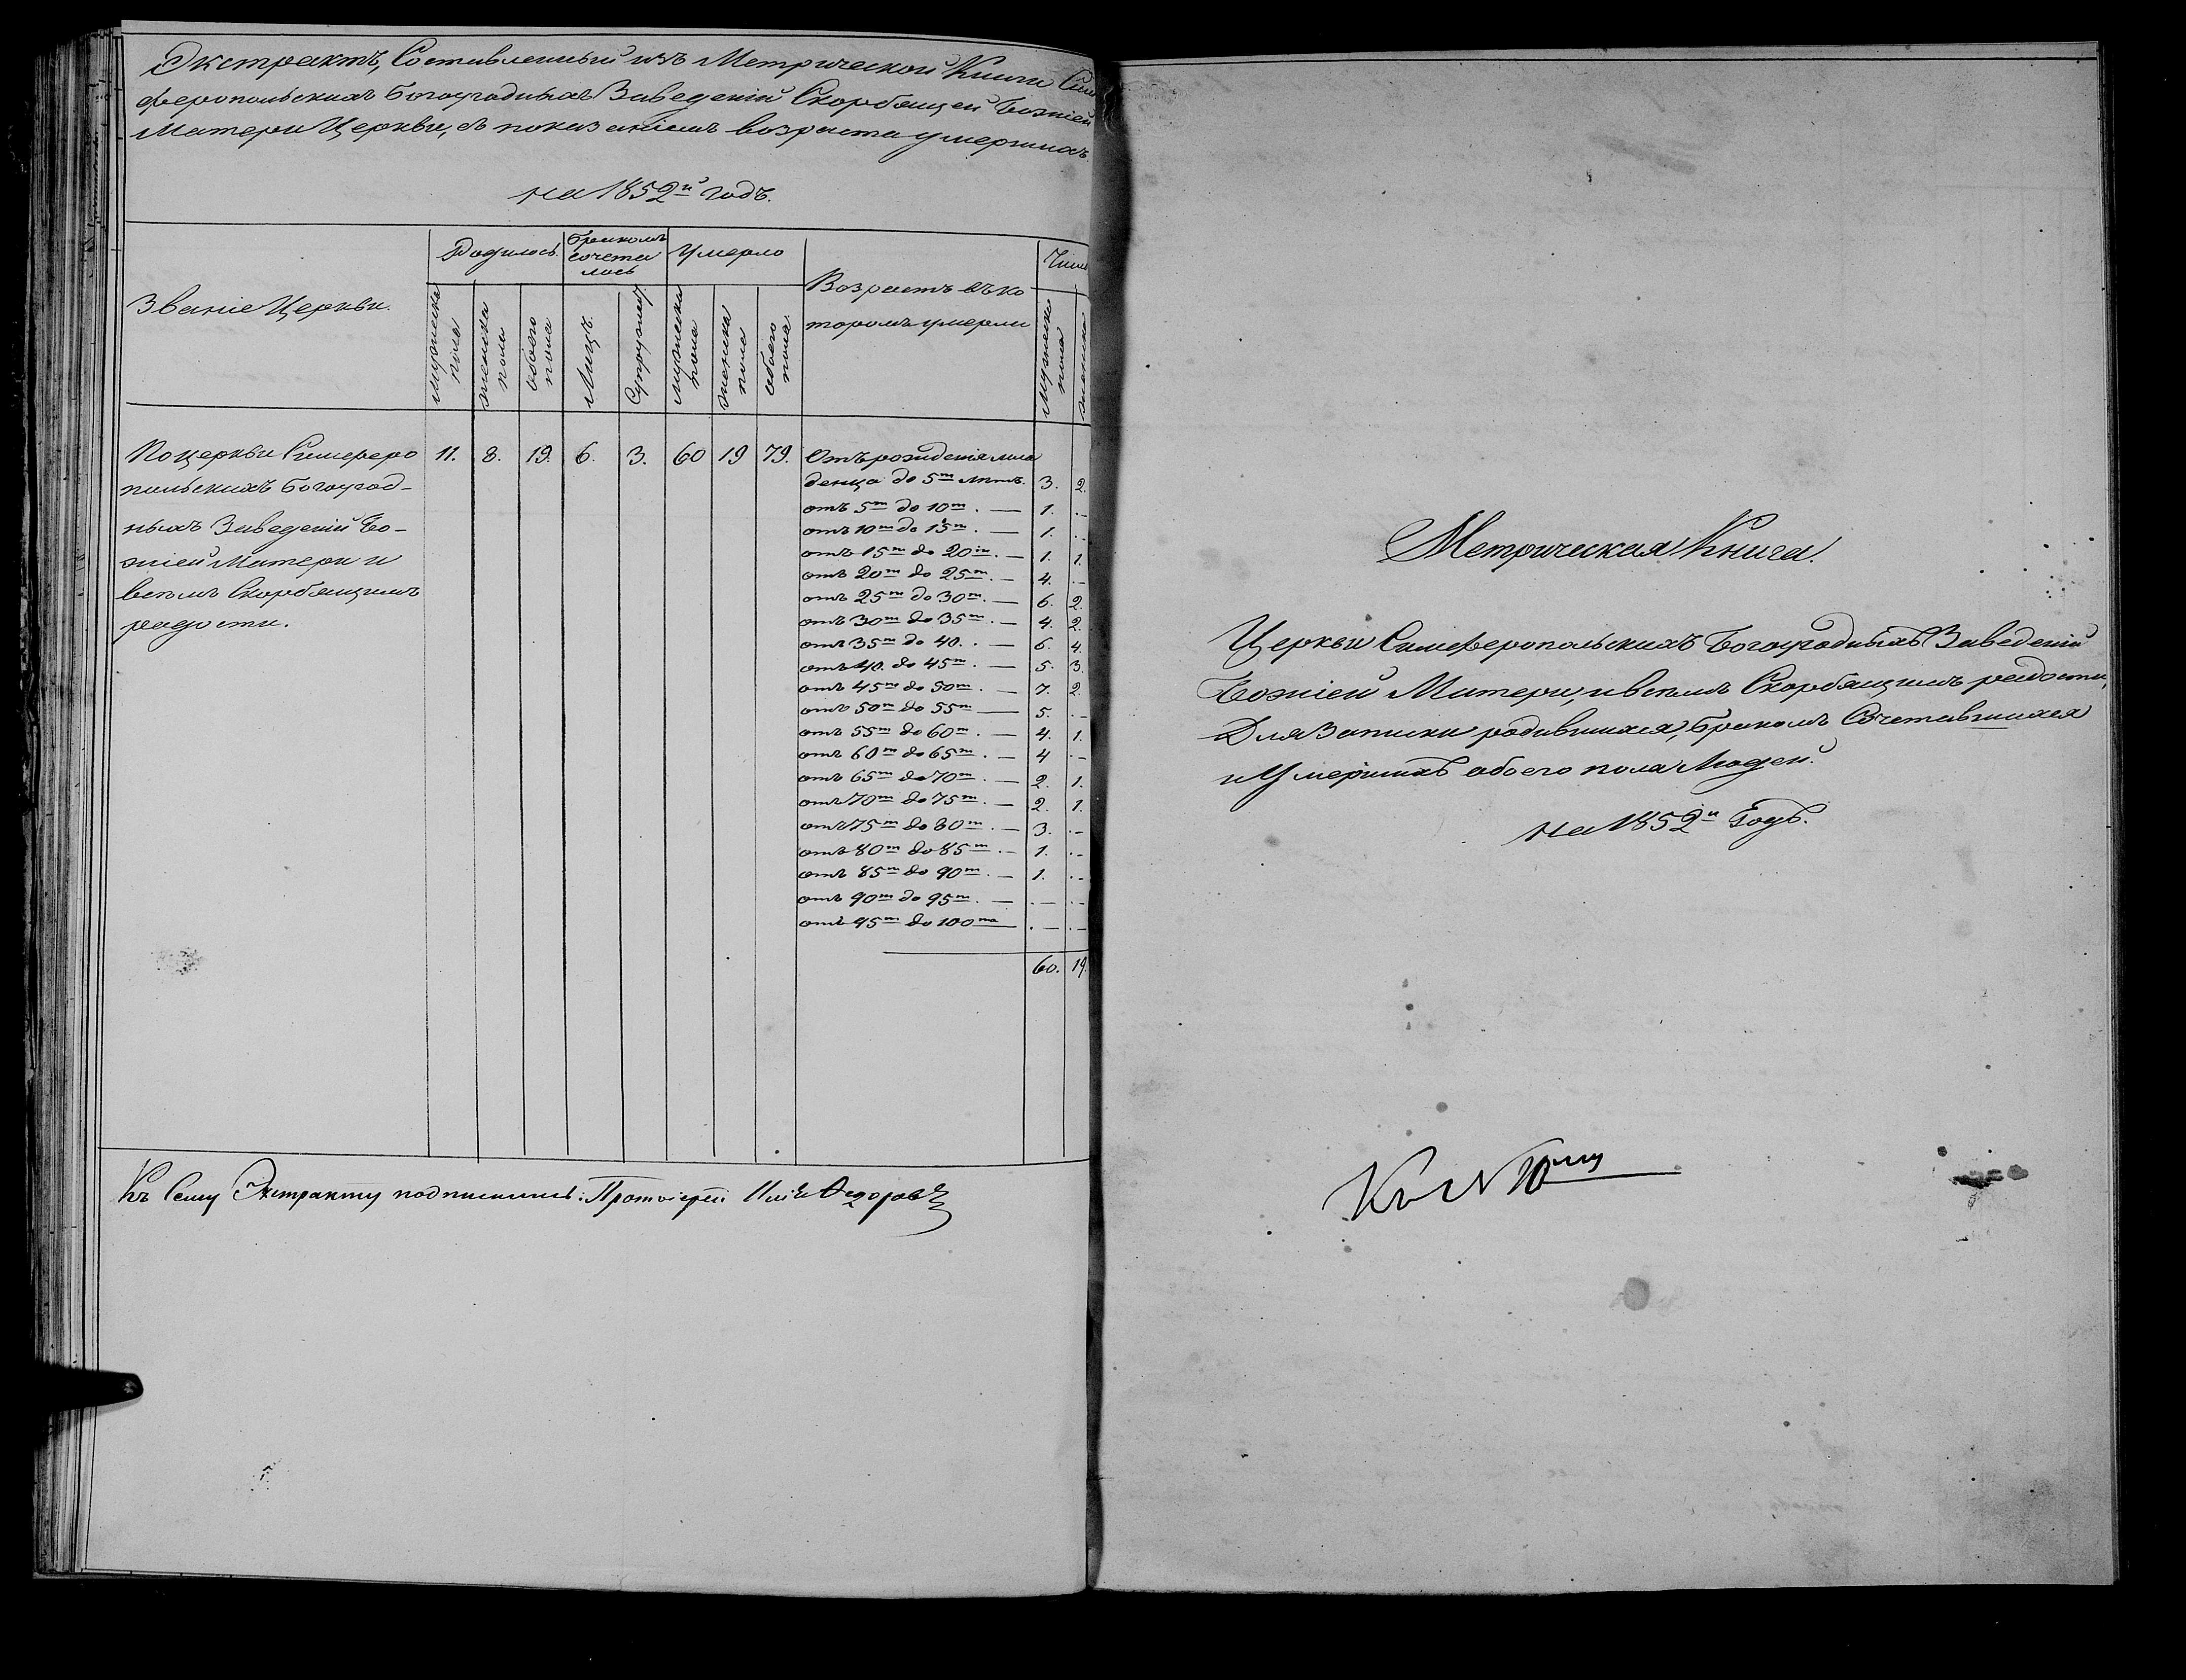 Экстрактъ, Составленный изъ Метрической Книги Сим
феропольскихъ Богоугодныхъ Заведеній Скорбящей Божіей
Матери Церкви, съ показаніемъ возраста умершихъ.
на 1852й годъ.
Званіе Церкви.
Родилось
Бракомъ сочета лось
Умерло
Возрастъ въ ко
торомъ умерли
Число
мужеска пола
женска пола
обоего пола
Лицъ.
Супружес.
мужеска пола
женска пола
обоего пола
мужеска пола
женска
По церкви Симферо 11. 8. 19. 6. 3. 60 19 79. Отъ рожденія мла
польскихъ Богоугод- денца до 5ти лѣтъ. 3. 2.
ныхъ Заведеній Бо-
жіей Матери и
всѣмъ Скорбящимъ
радости.
отъ 5ти до 10ти. — 1. . —
отъ 10ти до 15ти. — 1. . —
отъ 15ти до 20ти. — 1. 1.
отъ 20ти до 25ти. — 4. . —
отъ 25ти до 30ти. — 6. 2.
отъ 30ти до 35ти. — 4. 2.
отъ 35ти до 40. . — 6. 4.
отъ 40. до 45ти. — 5. 3.
отъ 45ти до 50ти. — 7. 2.
отъ 50ти до 55ти — 5. . —
отъ 55ти до 60ти. — 4. 1.
отъ 60ти до 65ти. — 4 . —
отъ 65ти до 70ти. — 2. 1.
отъ 70ти до 75ти. — 2. 1.
отъ 75ти до 80ти. — 3. . —
отъ 80ти до 85ти. — 1. . —
отъ 85ти до 90ти. — 1. . —
отъ 90ти до 95ти. — . — . —
отъ 95ти до 100та — . — . —
60. 19.
Къ Сему Экстракту подписались: Протоіерей Илія Ѳедоровъ
Метрическая Книга.
Церкви Симферопольскихъ Богоугодныхъ Заведеній
Божіей Матери, и всѣмъ Скорбящимъ радости,
Для Записки родившихся, бракомъ Сочетавшихся
и Умершихъ обоего пола Людей.
на 1852й Годъ.
Къ № 10му